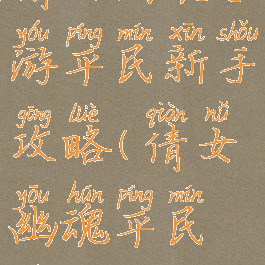 yóu píng mín xīn shǒu
游平民新手
gōng lüè qiàn nǚ
攻略(倩女
yōu hún píng mín
幽魂平民